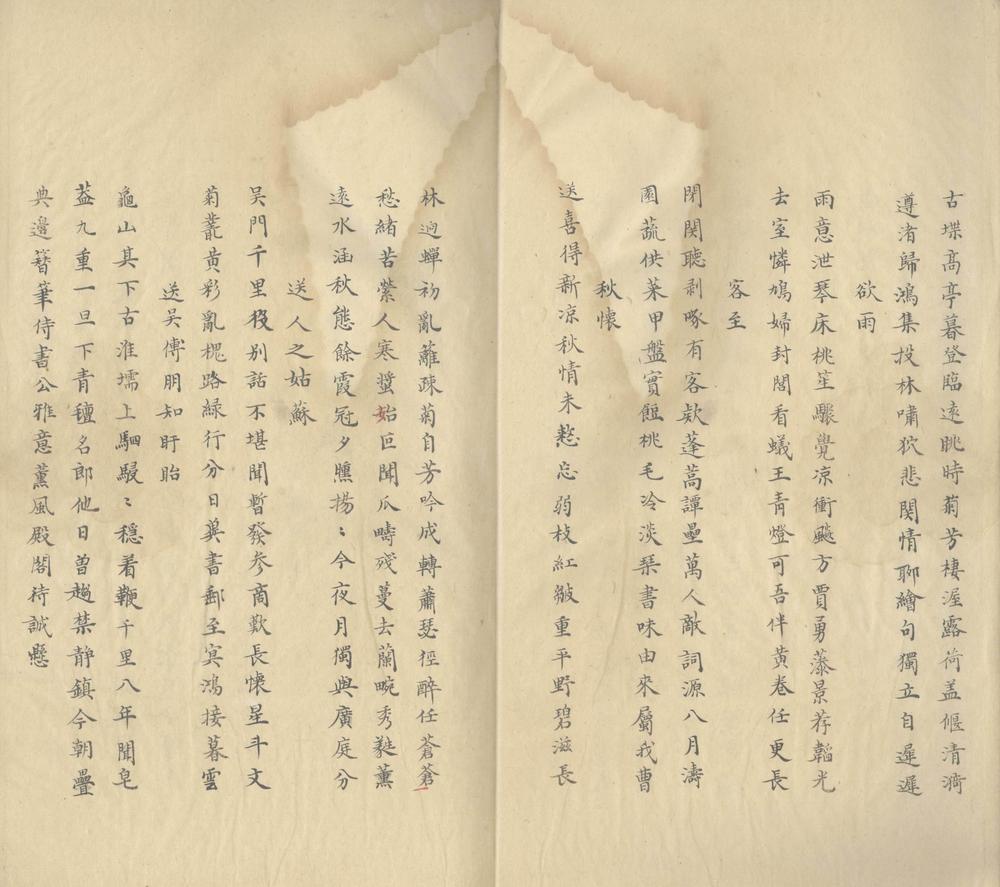 古堞高亭暮登臨遠眺時菊芳棲渥露荷盖偃清漪
遵渚歸鴻集投林嘯狖悲閱情聊繪句獨立自遲遲
欲雨
雨意泄琴床桃笙驟覺凉衝飈方賈勇藻景荐韜光
去室憐鳩婦封閤看蟻王青燈可吾伴黄卷任更長
客至
閉関聽剥啄有客欵蓬蒿譚壘萬人敵詞源八月濤
園蔬供菜甲盤實飣桃毛冷淡琹書味由來屬我曹
秋懷
送喜得新凉秋情未愁忘弱枝紅皴重平野碧滋長
林逈蟬初亂籬疎菊自芳吟成轉蕭瑟徑醉任蒼蒼
愁緒苦縈人寒螿始叵聞瓜疇殘蔓去蘭畹秀蕤薰
遠水涵秋態餘霞冠夕曛揚〻今夜月獨與廣庭分
送人之姑蘇
吳門千里役別話不堪聞暫發参商歎長懷星斗文
菊叢黄彩亂槐路緑行分日冀書郵至㝠鴻接暮雲
送吳傅朋知盱眙
龜山其下古淮壖上駟駸〻穩着鞭千里八年聞皂
葢九重一旦下青氊名郎他日曽趨禁静鎮今朝疊
典邊簪筆侍書公雅意薰風殿閣待誠懸